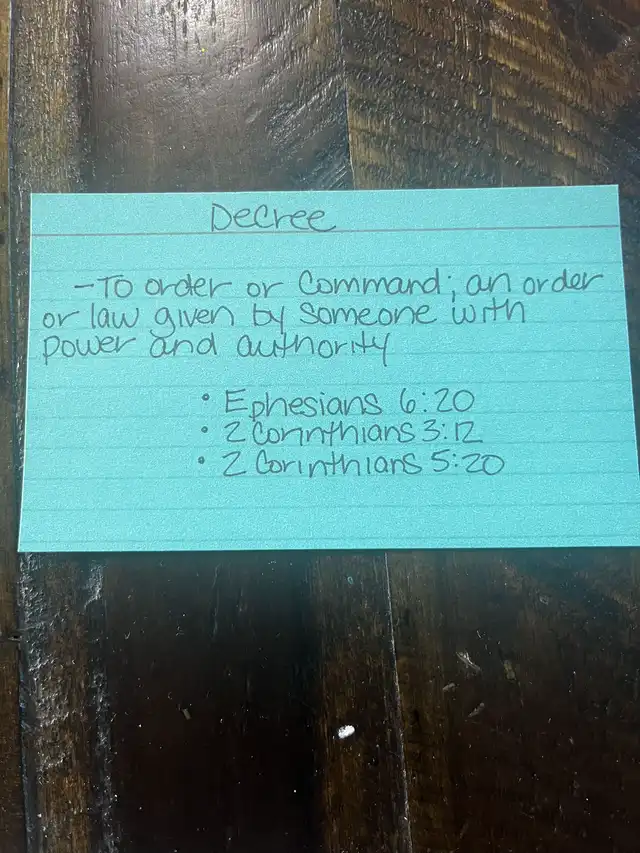 Decree
- To order or Command; an order
or law given by someone with
power and authority
• Ephesians 6:20
• 2 Corinthians 3:12
• 2 Corinthians 5:20